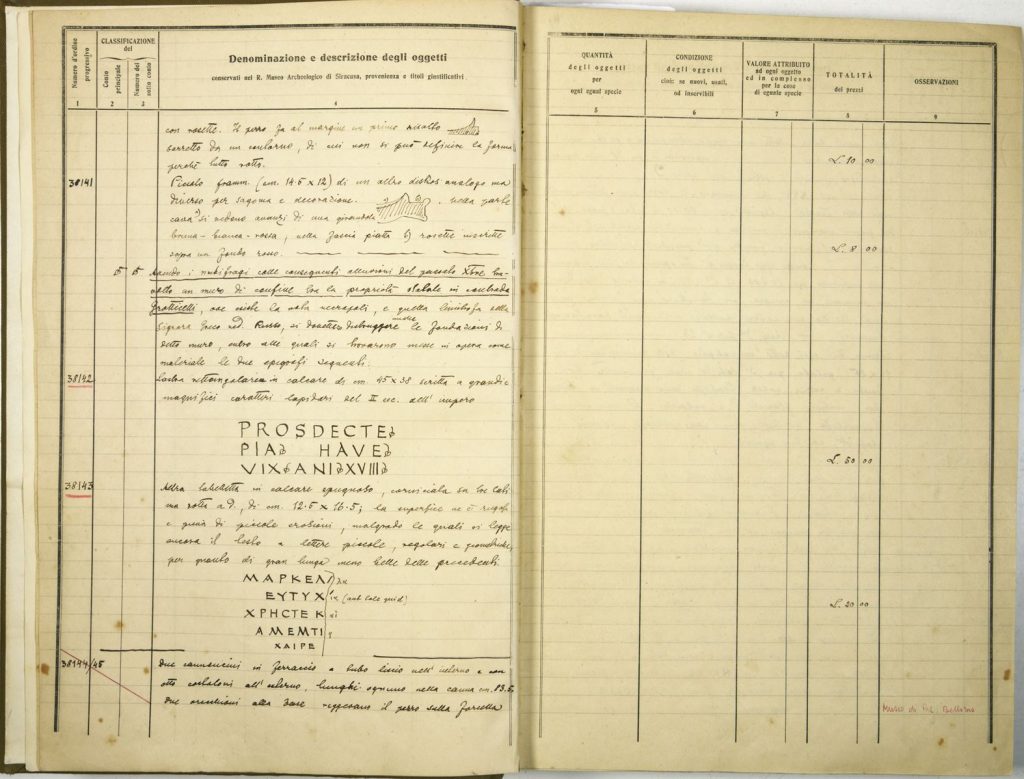 Numero d'ordine progressivo
CLASSIFICAZIONE
del
Conto principale
Numero del sotto conto
Denominazione e descrizione degli oggetti
conservati nel R. Museo Archeologico di Siracusa, provenienza e titoli giustificativi
1 2 3 4
con rosette. Il pezzo fa al margine un primo risalto
sorretto da un contorno, di cui non si può definire la forma
perché tutto rotto.
38141 Piccolo framm. (cm. 14.5 x 12) di un altro diskos analogo ma
diverso per sagoma e decorazione. nella parte
cava si vedono avanzi di una girandola
bruna-bianca-rossa, nella fascia piatta rosette inscritte
sopra un fondo rosso.
15 15 i nubifragi colle conseguenti alluvioni del passato Xbre
un muro di confine tra la proprietà in contrada
Grotticelli, ove esiste la nota necropoli, e quella limitrofa della
Signora Greco ved. Russo, si dovettero distruggere anche le fondazioni di
detto muro, entro alle quali si trovarono messe in opera come
materiale le due epigrafi seguenti.
38142 Lastra rettangolare in calcare di cm 45 x 38 scritta a grandi e
magnifici caratteri lapidari del II sec. dell'impero
PROSDECTE
PIA HAVE
VIX ANI XVIII
38143 Altra tabelletta in calcare spugnoso, corniciata su tre lati
ma rotta a d., di cm. 12.5 x 16.5; la superficie ne è rugosa
e piena di piccole erosioni, malgrado le quali si legge
ancora il testo a lettere piccole, regolari e geometriche,
per quanto di gran lunga meno belle delle precedenti.
ΜΑΡΚΕΛ
ΕΥΤΥΧ (aut tale quid)
ΧΡΗСΤΕ Κ
ΑΜΕΜΤΙ
ΧΑΙΡΕ
38144/45 Due cannoncini in ferraccio a tubo liscio nell'interno e con
otto costoloni all'esterno, lunghi ognuno nella canna cm. 83.5
due orecchioni alla base reggevano il pezzo sulla forcella
QUANTITÀ
degli oggetti
per
ogni egual specie
CONDIZIONE
degli oggetti
cioè: se nuovi, usati,
od inservibili
VALORE ATTRIBUITO
ad ogni oggetto
ed in complesso
per la cosa
di eguale specie
TOTALITÀ
dei prezzi
OSSERVAZIONI
5 6 7 8 9
L. 10 00
L. 8 00
L. 50 00
L. 20 00
Museo di Pal. Bellomo